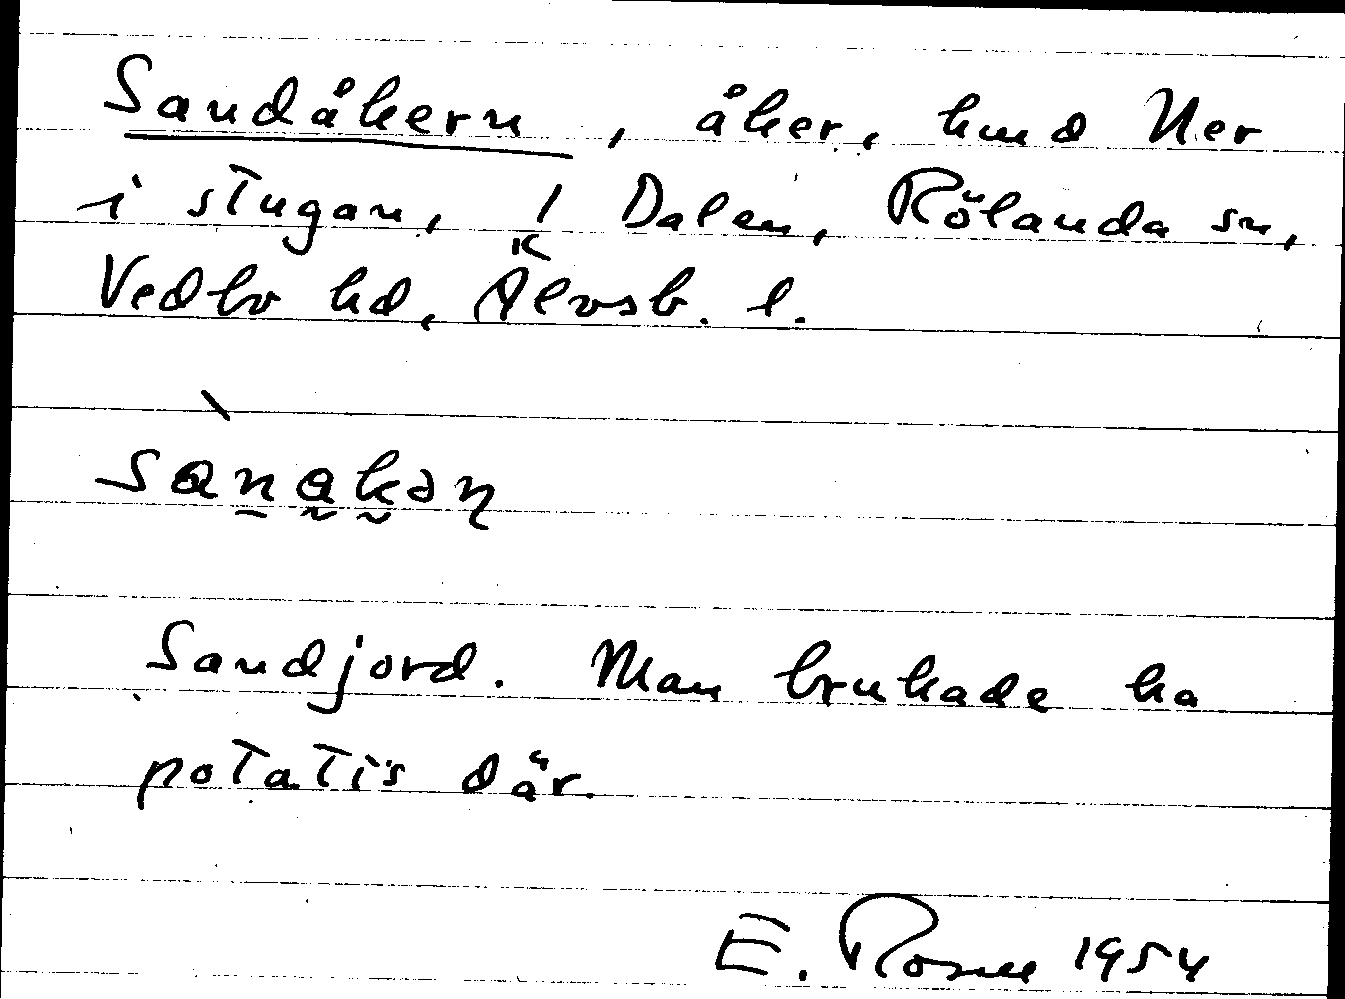 Sandåkern, åker, hmd Ner
i stugan, 1/K Dalen, Rölanda sn,
Vedbo hd, Älvsb. l.
Sandjord. Man brukade ha
potatis där.
E. Rosell 1954